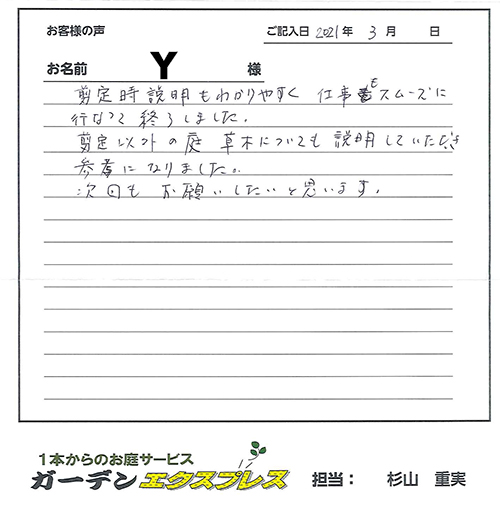 お客様の声 ご記入日 2021年 3月 日
お名前 Y 様
剪定時説明もわかりやすく 仕事もスムーズに
行なって終了しました。
剪定以外の庭 草木についても説明していただき
参考になりました。
次回も お願いしたいと思います。
1本からのお庭サービス
ガーデンエクスプレス 担当： 杉山 重実